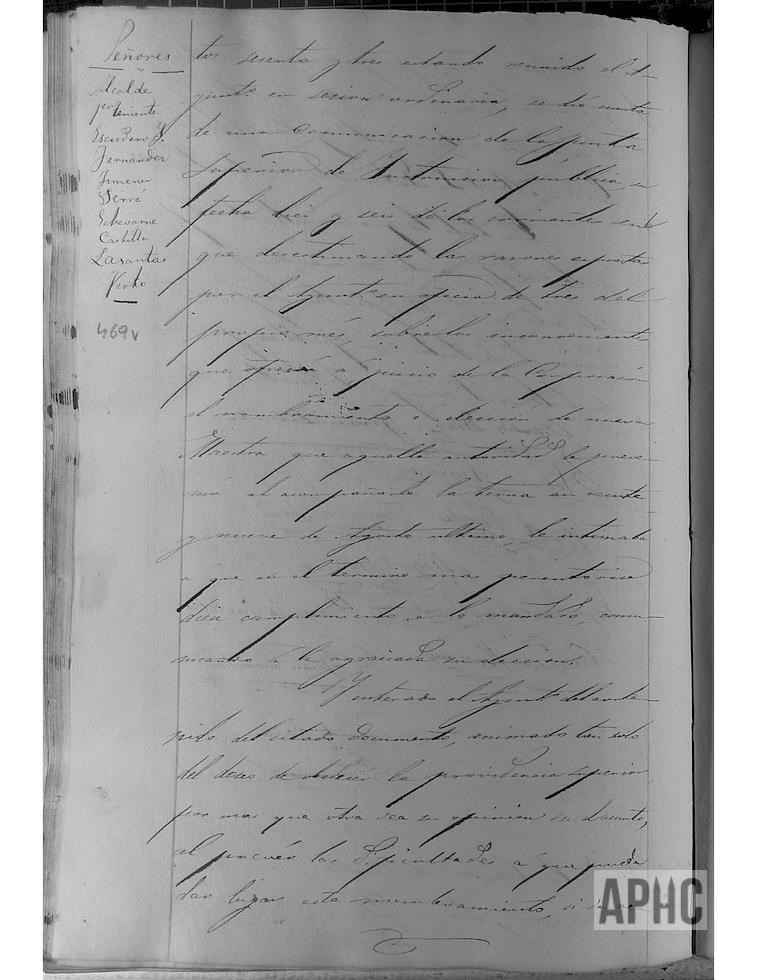 Señores
Alcalde
pr. teniente
Escudero J.
Fernandez
Jimenez
Serré
Echevarne
Castilla
Lasantas
469v
tos sesenta y tres estando reunido el A-
yunt.º en sesion ordinaria, se dió cuenta
de una comunicacion de la Junta
Superior de Instruccion pública, su
fecha diez y seis de los corrientes en
que desestimando las razones espuestas
por el Ayunt.º en oficio de tres del
propio mes, sobre los inconvenientes
que ofrecia a juicio de la Corporacion
el nombramiento o eleccion de nueva
Maestra que aquella autoridad le preve-
nia al acompañarle la terna en veinte
y nueve de Agosto ultimo, le intimaba
a que en el termino mas perentorio
diese cumplimiento a lo mandado, comu-
nicando a la agraciada su eleccion.
Y enterado el Ayunt.º del conte-
nido del citado documento, animado tan solo
del deseo de obedecer la providencia superior
por mas que otra sea su opinion en el asunto,
al preveer las dificultades á que pueda
dar lugar este nombramiento, si se
APHC